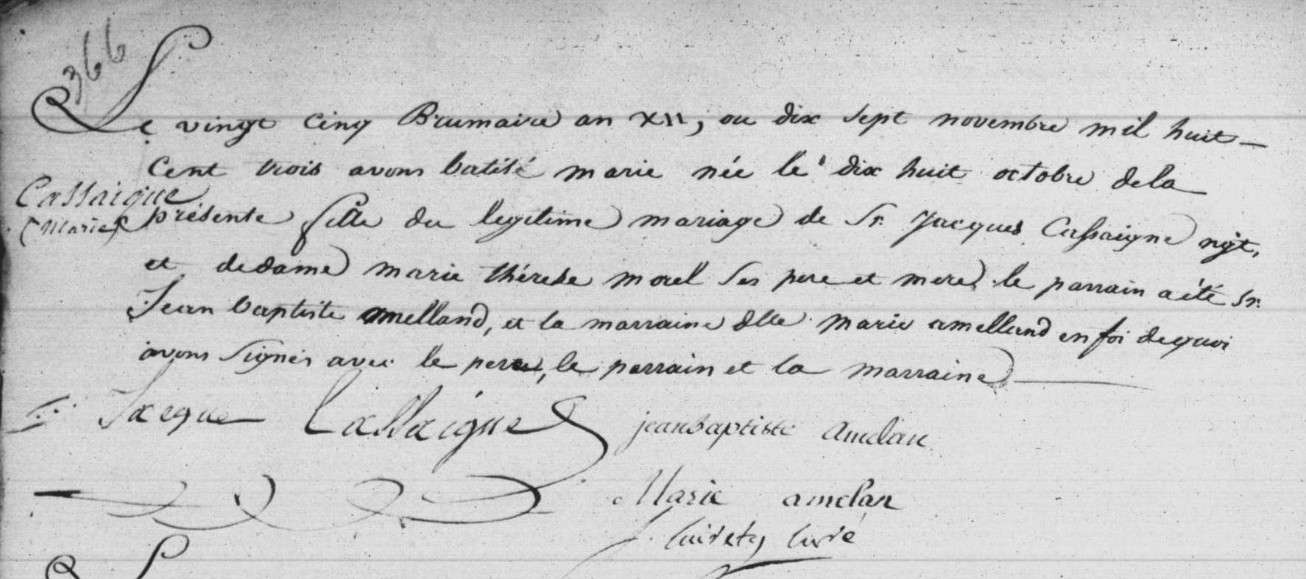 366
Le vingt cinq Brumaire an XII, ou dix sept novembre mil huit
Cent trois avons batisé marie née le dix huit octobre dela
Cassaigne
(Marie)
présente fille du legitime mariage de Sr. Jacques Cassaigne ngt,
et dedame marie thérese morel ses pere et mere, le parrain a été Sr.
Jean baptiste amelland, et la marraine dlle marie amelland en foi dequoi
avons signés avec le pere, le parrain et la marraine
Jacque Cassaigne jeanbaptiste Amelan
Marie amelan
curé